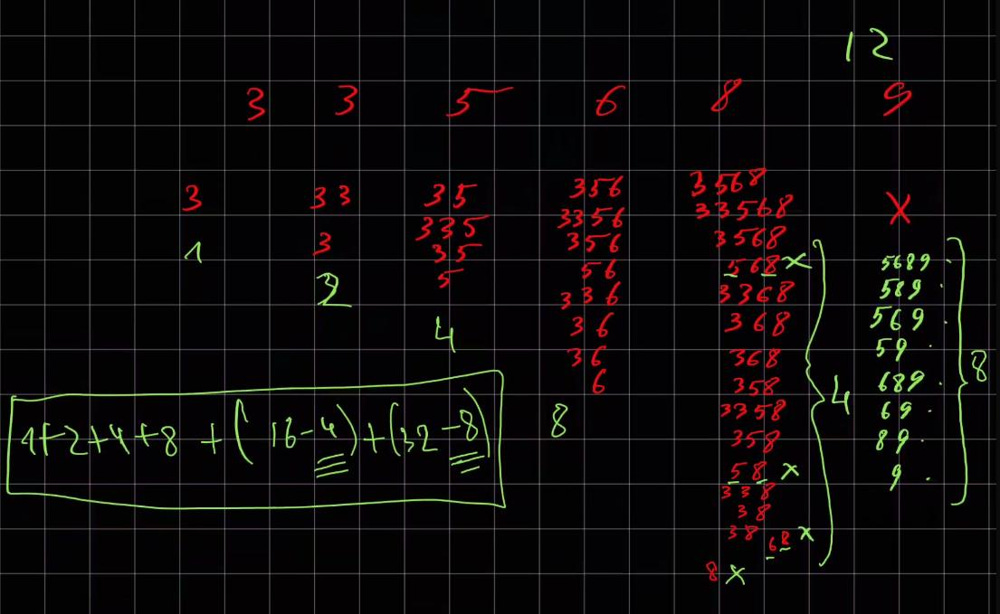 12
3 3 5 6 8 9
3 33 35 356 3568 X
335 3356 33568
3 35 356 3568
1 5 56 568 X 5689
2 336 3368 589
36 368 569
4 36 368 59
6 358 4 689 8
1+2+4+8 + (16-4)+(32-8) 8 3358 69
358 89
58 X 9
338
38
38 68 X
8 X